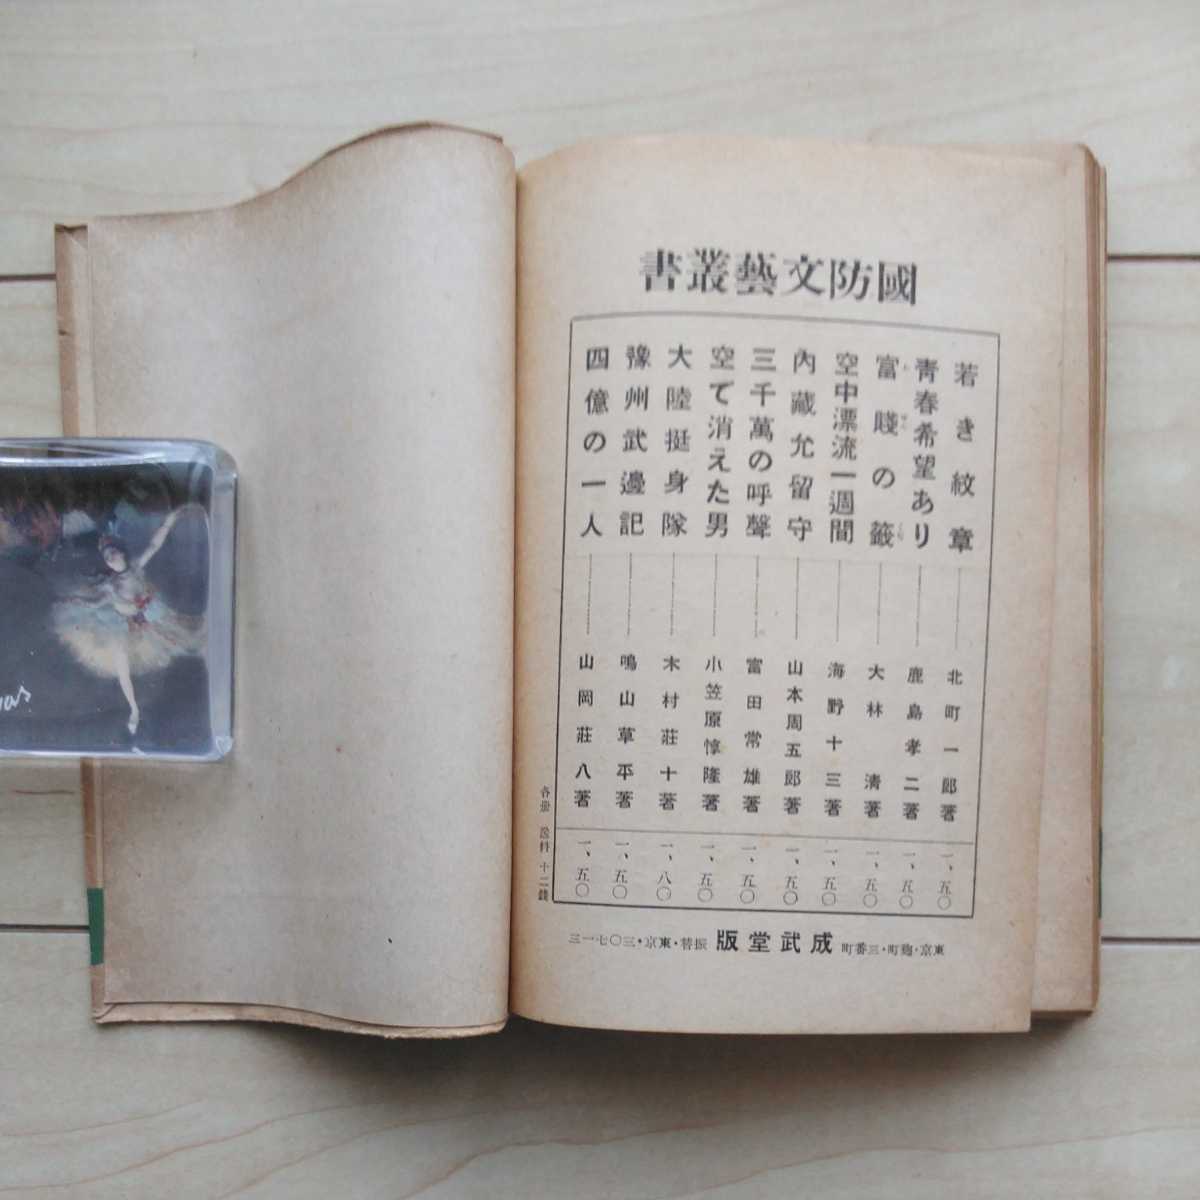 國防文藝叢書
若き紋章 北町一郎著 一、五〇
青春希望あり 鹿島孝二著 一、五〇
富賤の籤 大林清著 一、五〇
空中漂流一週間 海野十三著 一、五〇
內藏允留守 山本周五郎著 一、五〇
三千萬の呼聲 富田常雄著 一、五〇
空で消えた男 小笠原惇隆著 一、五〇
大陸挺身隊 木村莊十著 一、八〇
豫州武邊記 鳴山草平著 一、五〇
四億の一人 山岡莊八著 一、五〇
各册 送料 十二錢
東京・麴町・三番町 成武堂版 振替・東京・三〇七一三